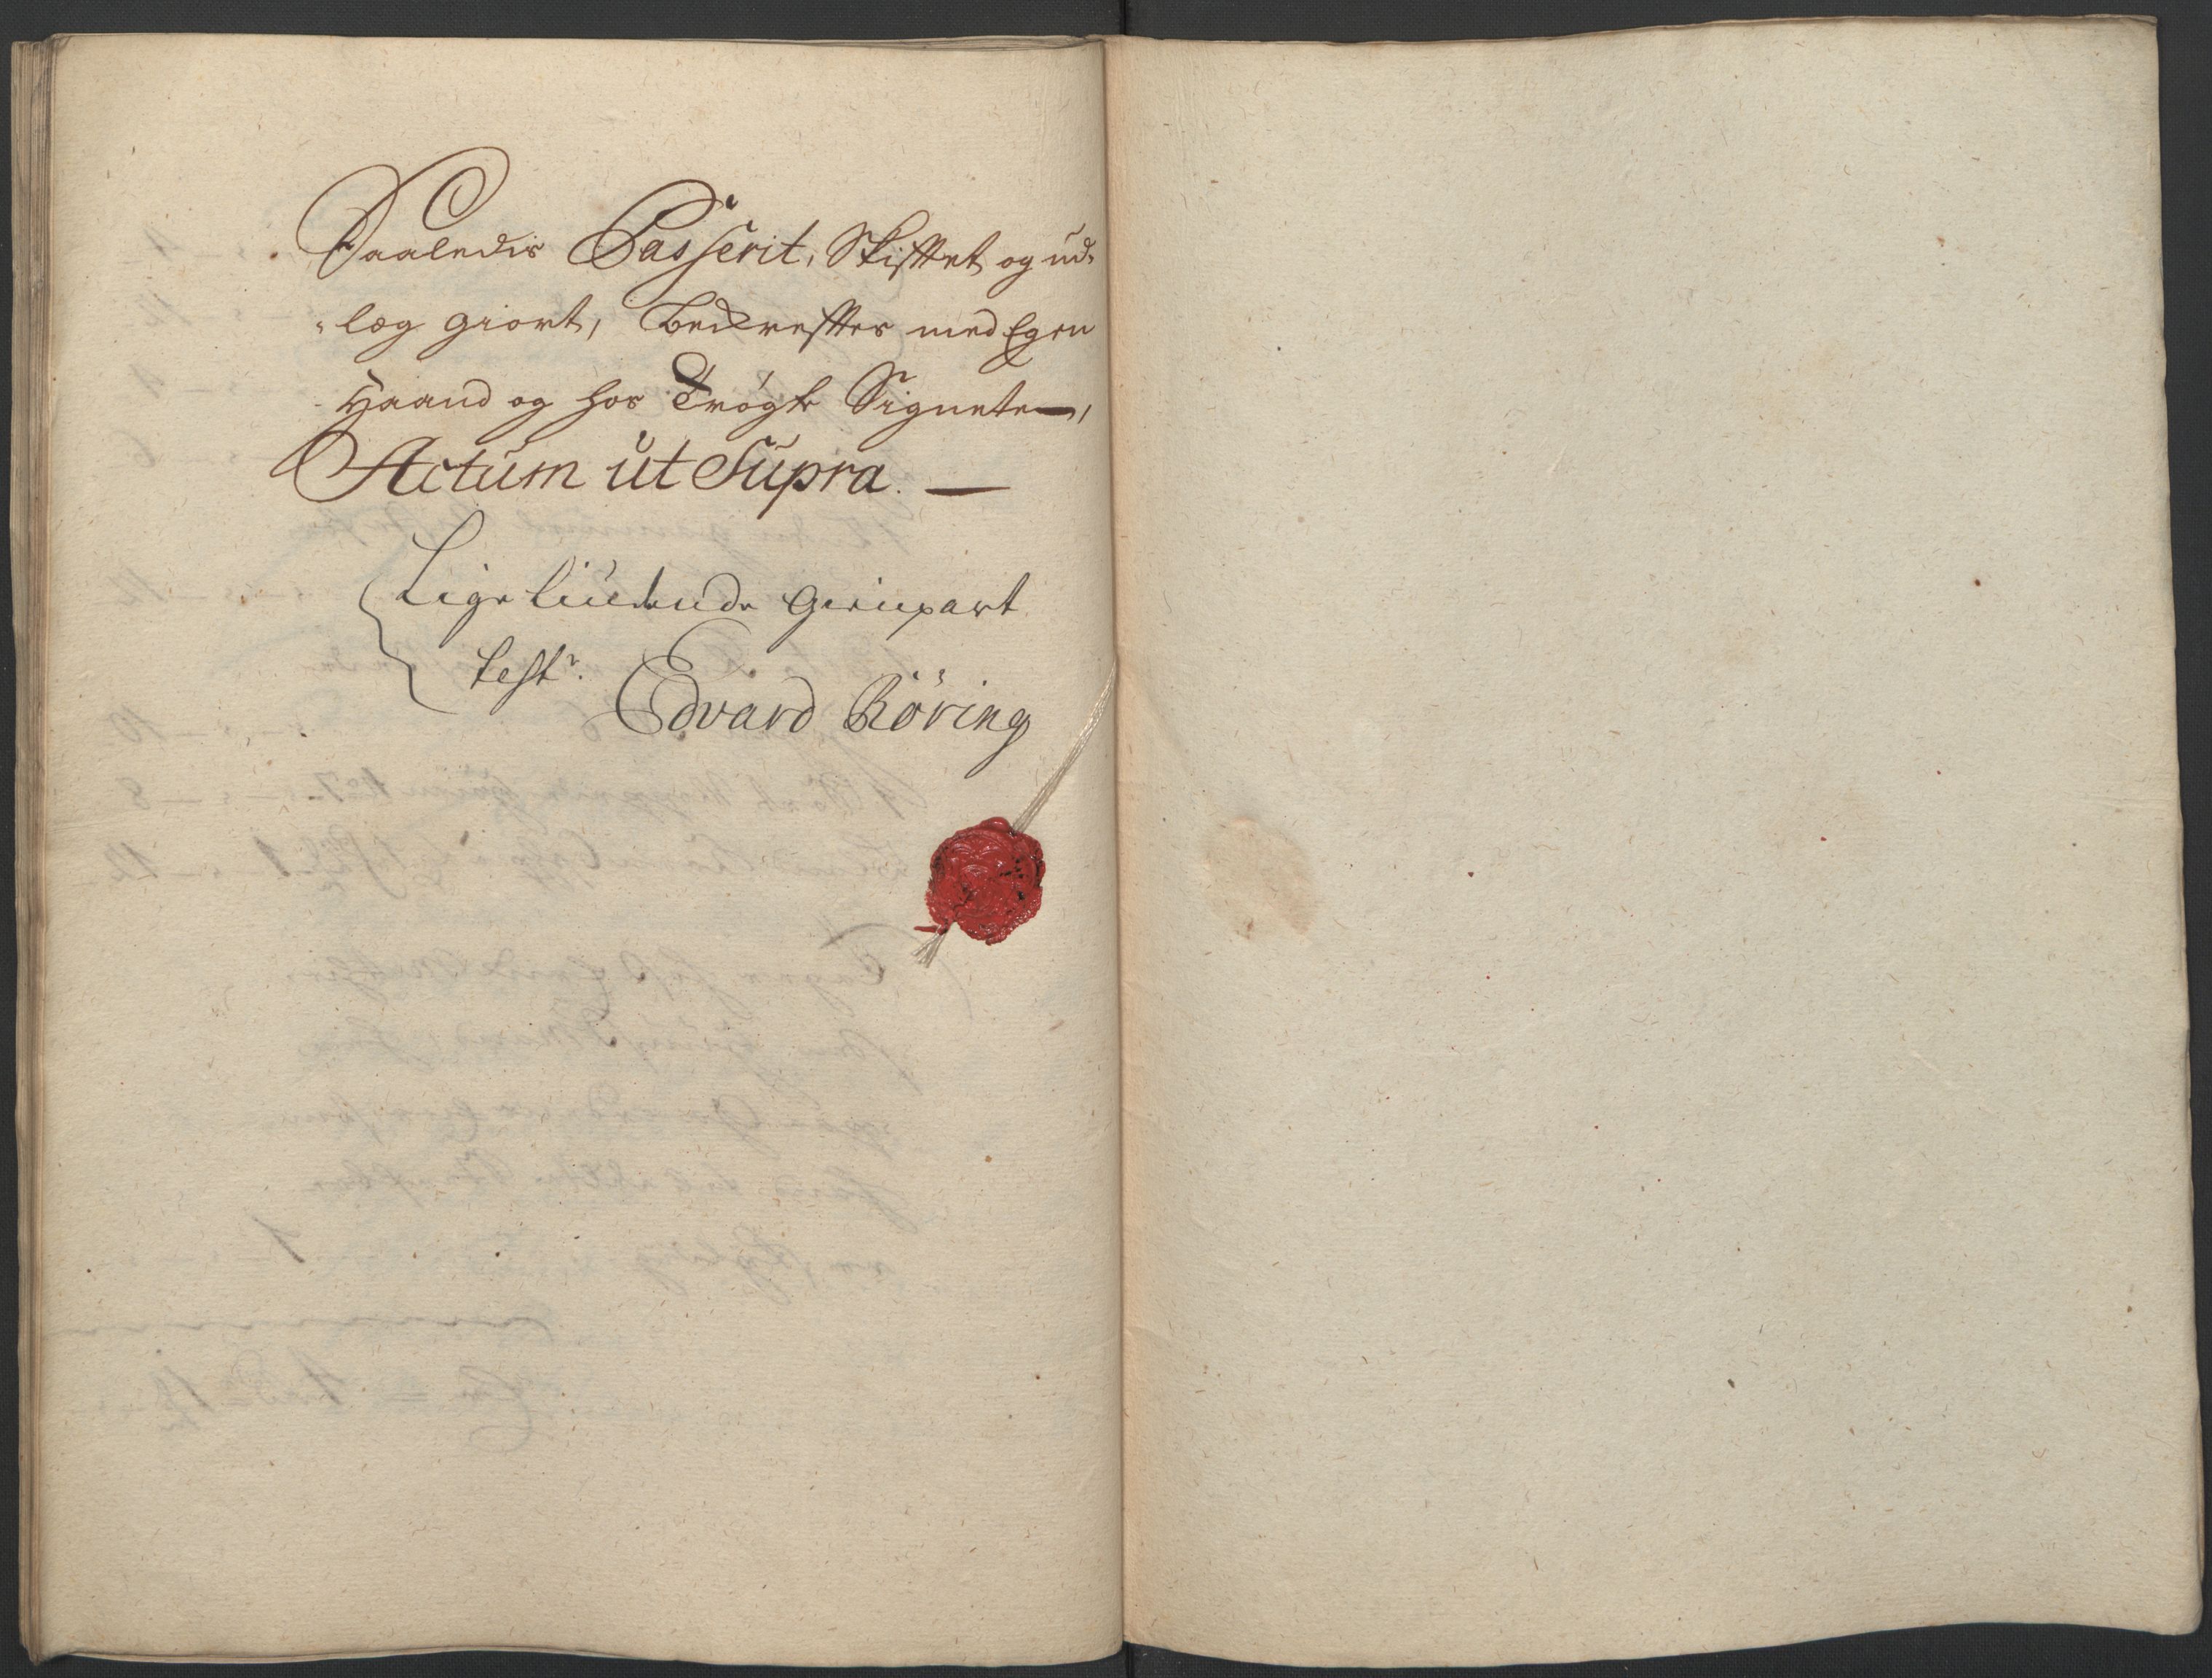 Saaledis Passerit, Skifttet og ud-
-læg giort, Bekreffttes med Egen
Haand og hos Trögte Signeter,
Actum ut Supra. —
Lige liudende Gienpart
test.
Edvard Röring